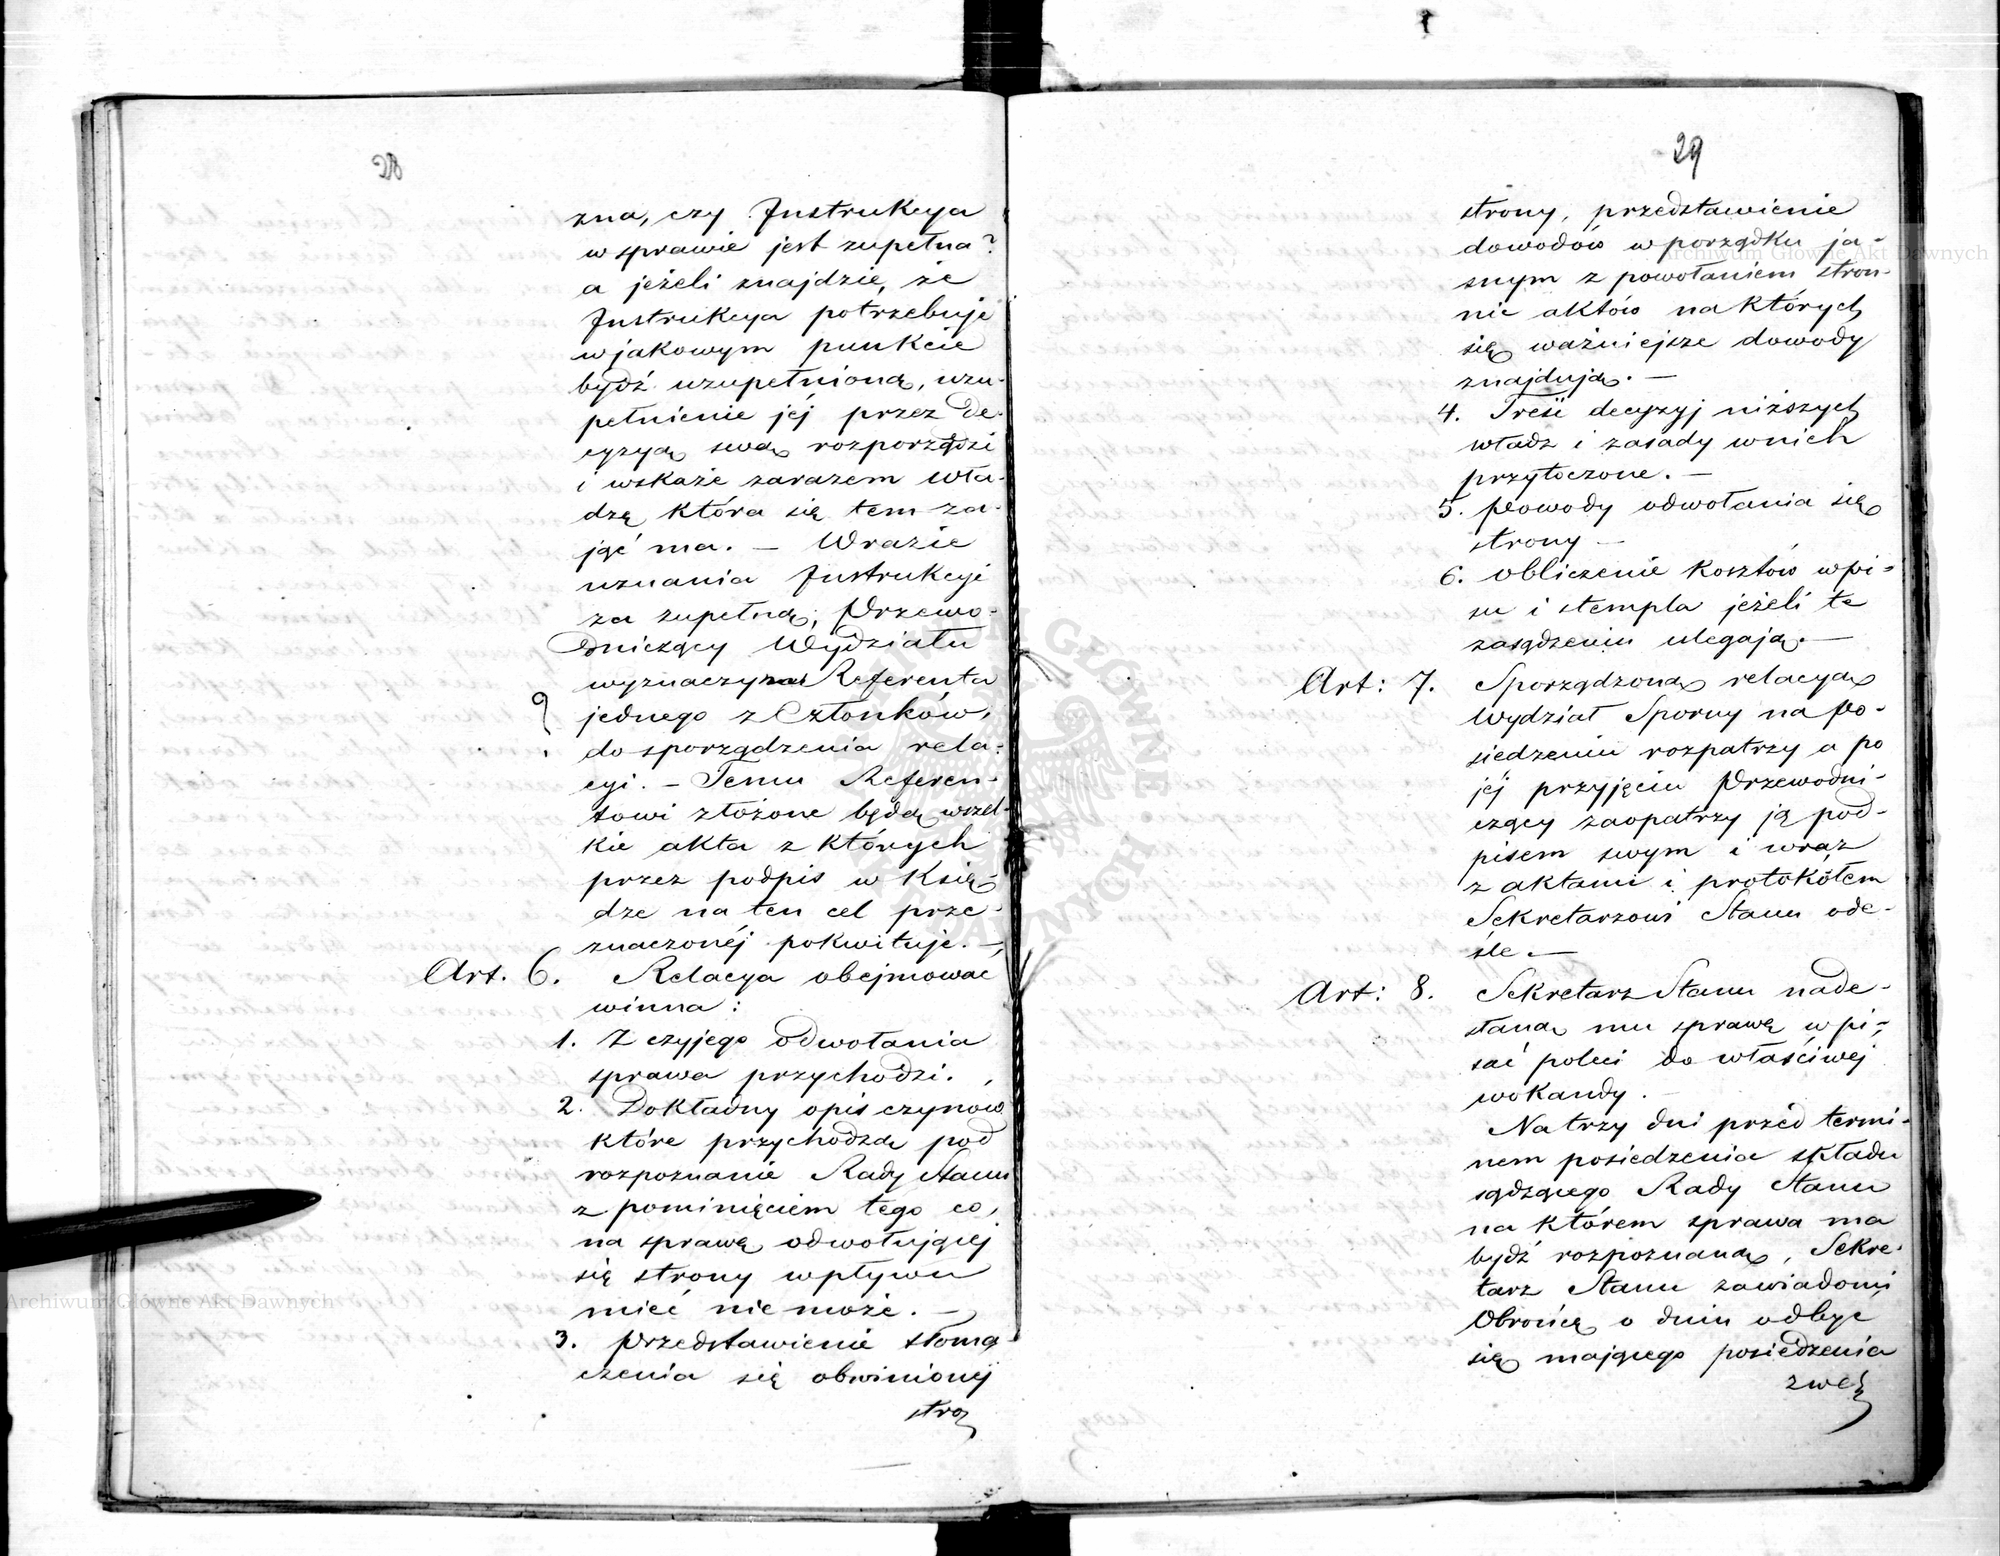 28
zna, czy Instrukcya
w sprawie jest zupełna?
a jeżeli znajdzie, że
Instrukcya potrzebuje
w jakowym punkcie
bydź uzupełnioną, uzu-
pełnienie jéj przez de-
cyzyą swą rozporządzi
i wskaże zarazem wła-
dzę która się tem za-
jąć ma. — W razie
uznania Instrukcyi
za zupełną, Przewo-
dniczący Wydziału
wyznaczy na Referenta
jednego z Członków,
do sporządzenia rela-
cyi. — Temu Referen-
towi złożone będą wszel-
kie akta z których
przez podpis w Księ-
dze na ten cel prze-
znaczonéj pokwituje. —
Art. 6. Relacya obejmować
winna:
1. Z czyjego odwołania
sprawa przychodzi.
2. Dokładny opis czynów
które przychodzą pod
rozpoznanie Rady Stanu
z pominięciem tego co,
na sprawę odwołującej
się strony wpływu
mieć nie może. —
3. Przedstawienie tłoma
czenia się obwinionej
stro
29
strony, przedstawienie
dowodów w porządku ja-
snym z powołaniem stron-
nic aktów na których
się ważniejsze dowody
znajdują. —
4. Treść decyzyj niższych
władz i zasady w nich
przytoczone. —
5. Powody odwołania się
strony —
6. Obliczenie kosztów wpi-
su i stempla jeżeli te
zasądzeniu ulegają. —
Art: 7. Sporządzoną relacyą
Wydział Sporny na Po-
siedzeniu rozpatrzy a po
jéj przyjęciu Przewodni-
czący zaopatrzy ją pod-
pisem swym i wraz
z aktami i protokółem
Sekretarzowi Stanu ode-
śle. —
Art: 8. Sekretarz Stanu nade-
słaną mu sprawę wpi-
sać poleci do właściwej
wokandy. —
Na trzy dni przed termi-
nem posiedzenia składu
sądzącego Rady Stanu
na którem sprawa ma
bydź rozpoznaną, Sekre-
tarz Stanu zawiadomi
Obrońcę o dniu odbyć
się mającego posiedzenia
zwe
Archiwum Główne Akt Dawnych
Archiwum Główne Akt Dawnych